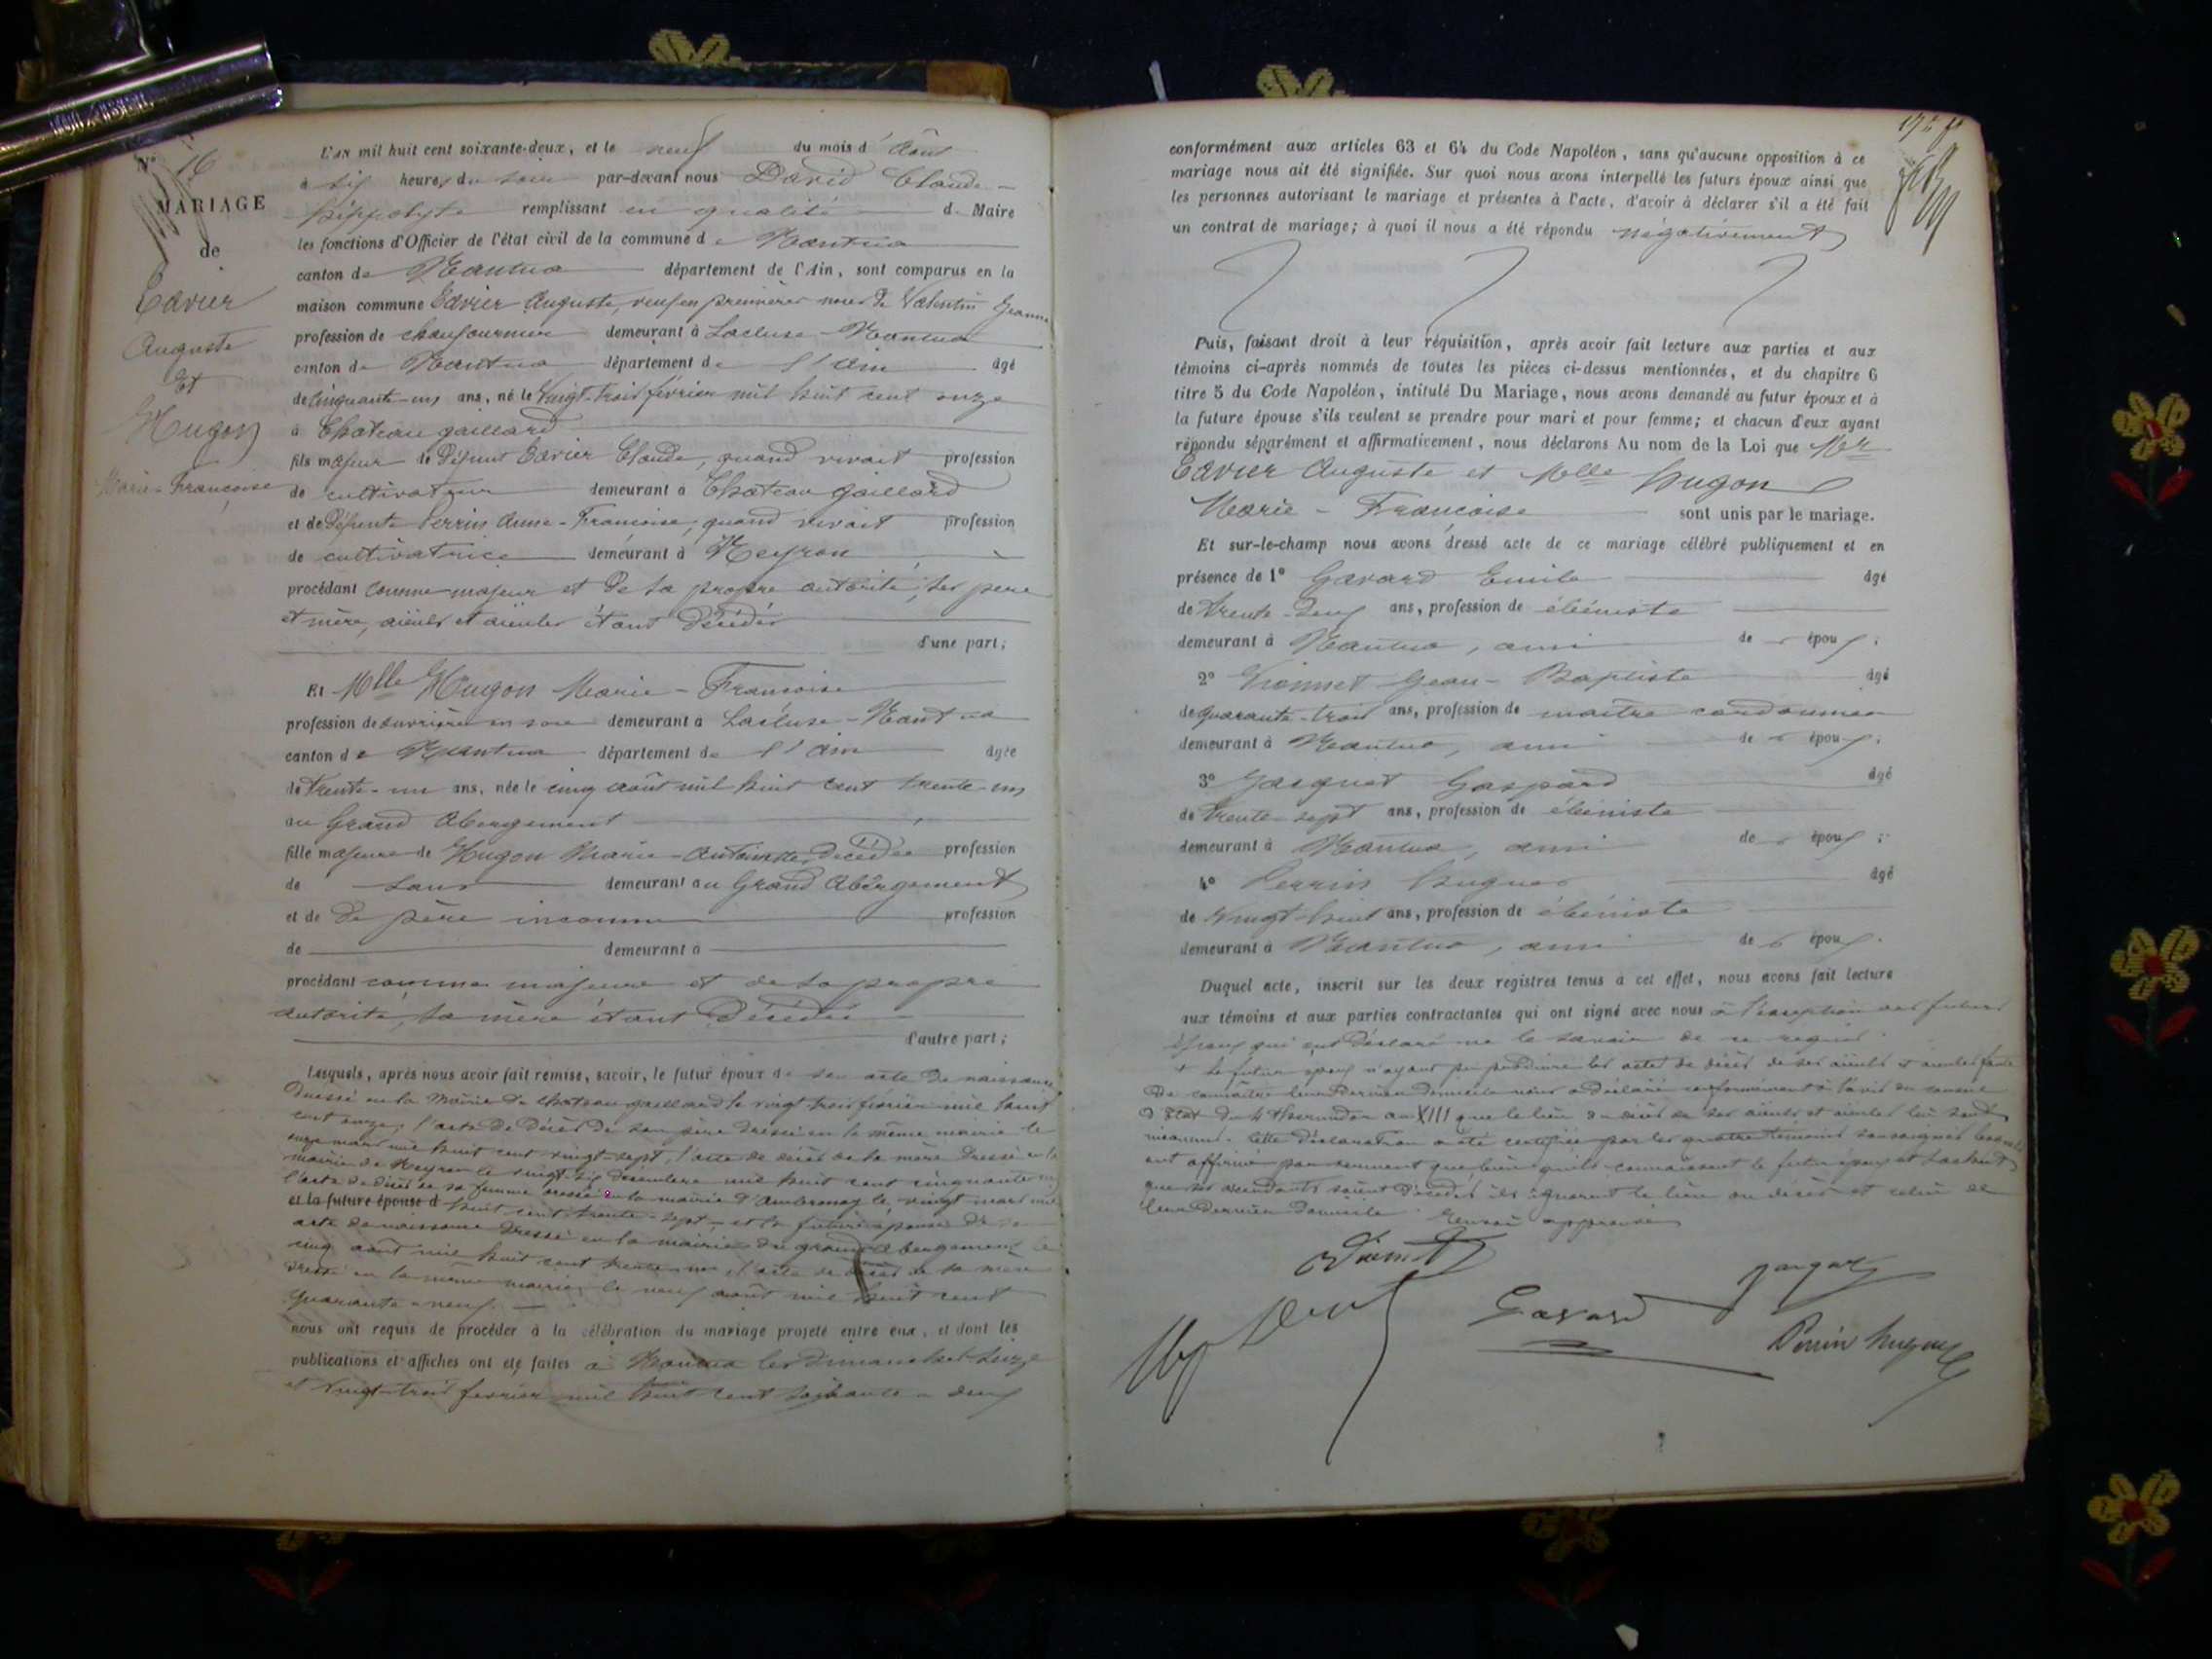 N° 16
MARIAGE
de
Edvier
Auguste
Et
Hugon
Marie-Françoise
L'an mil huit cent soixante-deux, et le neuf du mois d'Août
à six heures du soir par-devant nous David Claude-
hippolyte remplissant en qualité de Maire
les fonctions d'Officier de l'état civil de la commune de Nantua
canton de Nantua département de l'Ain, sont comparus en la
maison commune Edvier Auguste, veuf en premières noces de Valentin Jeanne
profession de chaufournier demeurant à Lacluse-Nantua
canton de Nantua département de l'Ain âgé
de Cinquante-un ans, né le Vingt-trois février mil huit cent onze
à Chateau gaillard
fils majeur de Défunt Edvier Claude, quand vivait profession
de cultivateur demeurant à Chateau gaillard
et de Défunte Perrin Anne-Françoise, quand vivait profession
de cultivatrice demeurant à Neyron
procédant comme majeur et de sa propre autorité, ses père
et mère, aïeuls et aïeules étant Décédés
d'une part;
Et Mlle Hugon Marie-Françoise
profession de ouvrière en soie demeurant à Lacluse-Nantua
canton de Nantua département de l'Ain âgée
de Trente-un ans, née le cinq août mil huit cent trente-un
au Grand Abergement
fille majeure de Hugon Marie-Antoinette, Décédée profession
de sans demeurant au Grand Abergement
et de De père inconnu profession
de demeurant à
procédant comme majeure et de sa propre
autorité, sa mère étant Décédée
d'autre part;
Lesquels, après nous avoir fait remise, savoir, le futur époux de son acte de naissance
Dressé en la Mairie de Chateau gaillard le vingt-trois février mil huit
cent onze, l'acte de Décès de son père Dressé en la même mairie le
onze mars mil huit cent vingt-sept, l'acte de décès de sa mère Dressé en la
mairie de Neyron le vingt-six décembre mil huit cent cinquante
l'acte de décès de sa femme dressé en la mairie d'Ambronay le vingt mars mil
et la future épouse d huit cent trente-sept - et la future épouse de son
acte de naissance Dressé en la mairie du grand abergement le
cinq août mil huit cent trente-un et l'acte de décès de sa mère
dressé en la même mairie le neuf août mil huit cent
quarante-neuf.
nous ont requis de procéder à la célébration du mariage projeté entre eux, et dont les
publications et affiches ont été faites à Nantua les dimanches seize
et vingt-trois février mil huit cent soixante-deux
conformément aux articles 63 et 64 du Code Napoléon, sans qu'aucune opposition à ce
mariage nous ait été signifiée. Sur quoi nous avons interpellé les futurs époux ainsi que
les personnes autorisant le mariage et présentes à l'acte, d'avoir à déclarer s'il a été fait
un contrat de mariage; à quoi il nous a été répondu négativement
Puis, faisant droit à leur réquisition, après avoir fait lecture aux parties et aux
témoins ci-après nommés de toutes les pièces ci-dessus mentionnées, et du chapitre 6
titre 5 du Code Napoléon, intitulé Du Mariage, nous avons demandé au futur époux et à
la future épouse s'ils veulent se prendre pour mari et pour femme; et chacun d'eux ayant
répondu séparément et affirmativement, nous déclarons Au nom de la Loi que Mr
Edvier Auguste et Melle hugon
Marie-Françoise sont unis par le mariage.
Et sur-le-champ nous avons dressé acte de ce mariage célébré publiquement et en
présence de 1° Gavard Emile âgé
de trente-deux ans, profession de ébéniste
demeurant à Nantua, ami de l'époux;
2° Vionnet Jean-Baptiste âgé
de quarante-trois ans, profession de maître cordonnier
demeurant à Nantua, ami de l'époux;
3° Jacquet Gaspard âgé
de trente-sept ans, profession de ébéniste
demeurant à Nantua, ami de l'époux;
4° Perrin hugues âgé
de Vingt-huit ans, profession de ébéniste
demeurant à Nantua, ami de l'époux.
Duquel acte, inscrit sur les deux registres tenus à cet effet, nous avons fait lecture
aux témoins et aux parties contractantes qui ont signé avec nous à l'exception des futurs
époux qui ont Déclaré ne le savoir de ce requis.
+ Le futur époux n'ayant pu produire les actes de décès de ses aïeuls et aïeules faute
De connaître leur dernier domicile nous a Déclaré conformément à l'avis du conseil
d'Etat du 4 thermidor an XIII que le lieu du décès de ses aïeuls et aïeules lui sont
inconnus. Cette déclaration a été certifiée par les quatre témoins soussignés lesquels
ont affirmé par serment que bien qu'ils connaissent le futur époux et sachent
que ses ascendants soient décédés ils ignorent le lieu du décès et celui de
leur dernier domicile. Renvoi approuvé
Gavard
Perrin hugues